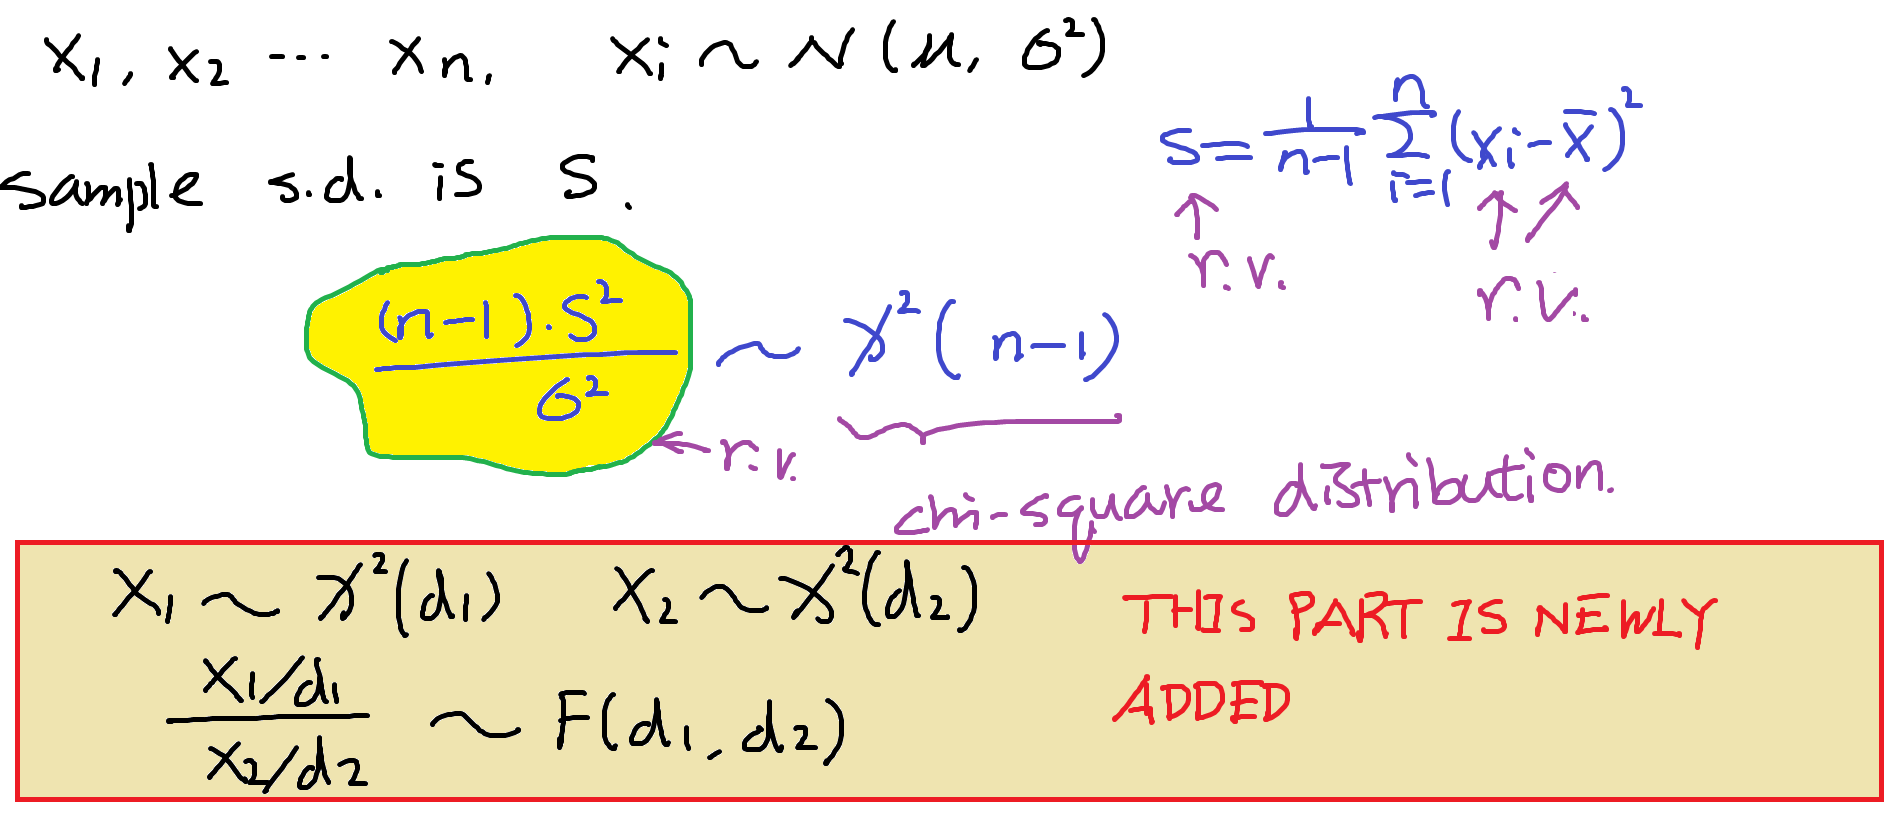 x₁, x₂ ... xₙ, xᵢ ~ N(μ, σ²)
sample s.d. is S.
S = 1/(n-1) ∑ᵢ₌₁ⁿ (xᵢ - x̄)²
r.v.
r.v.
(n-1)·S²/σ² ~ χ²(n-1)
r.v.
chi-square distribution.
X₁ ~ χ²(d₁) X₂ ~ χ²(d₂)
(X₁/d₁)/(X₂/d₂) ~ F(d₁, d₂)
THIS PART IS NEWLY
ADDED